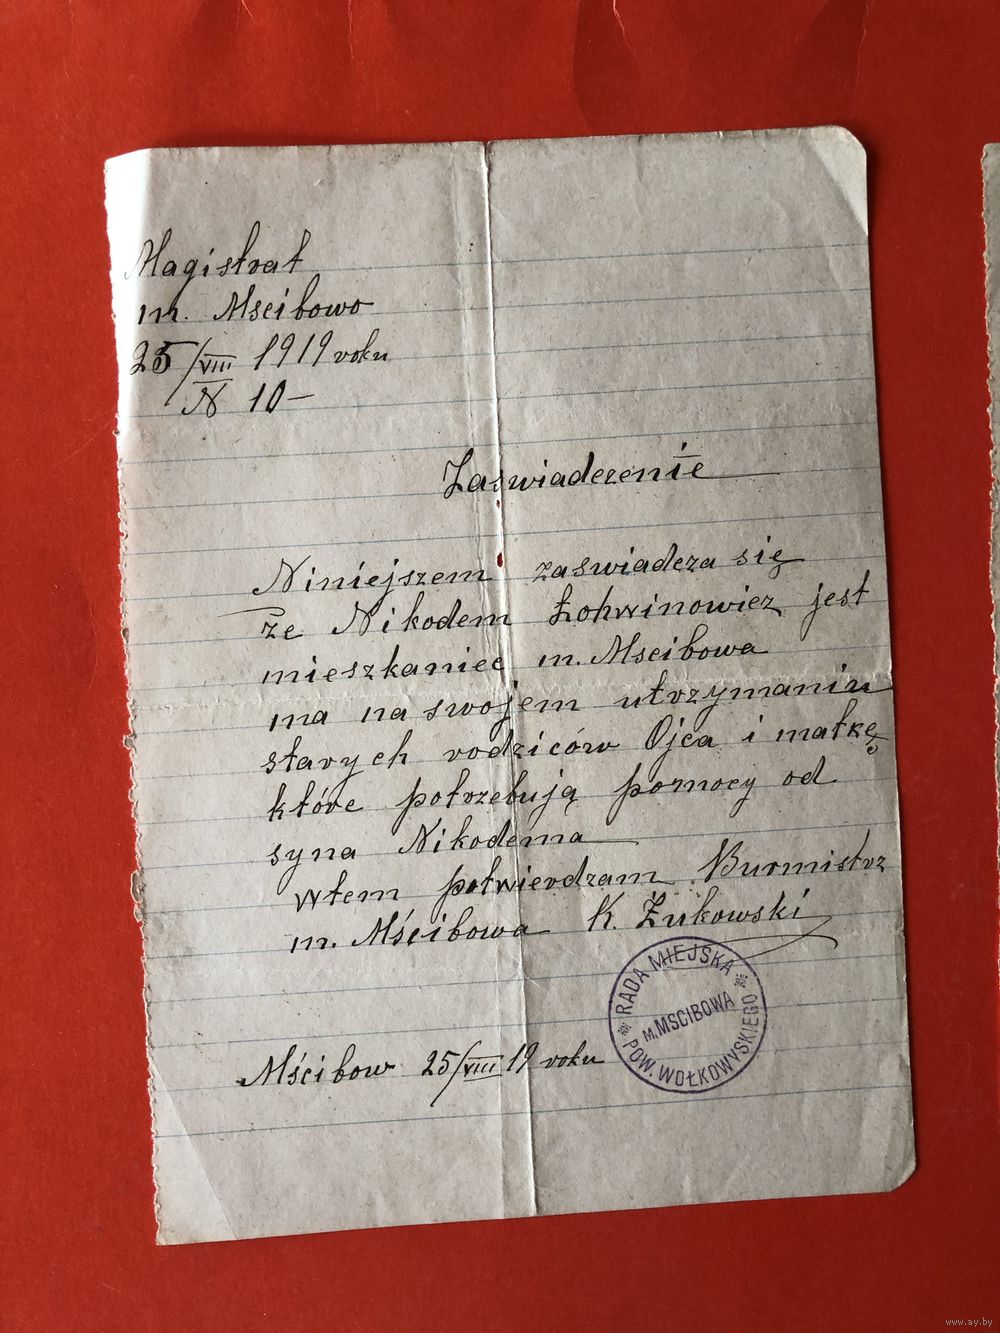 Magistrat
m. Mscibowo
25/VIII 1919 roku
N 10-
Zaswiadczenie
Niniejszem zaswiadcza się
że Nikodem Łohwinowicz jest
mieszkaniec m. Mscibowa
ma na swojem utrzymaniu
starych rodziców Ojca i matkę
które potrzebują pomocy od
syna Nikodema
wtem potwierdzam Burmistrz
m. Mścibowa K. Żukowski
RADA MIEJSKA
m. MSCIBOWA
POW. WOŁKOWYSKIEGO
Mścibow 25/VIII 19 roku
www.ay.by